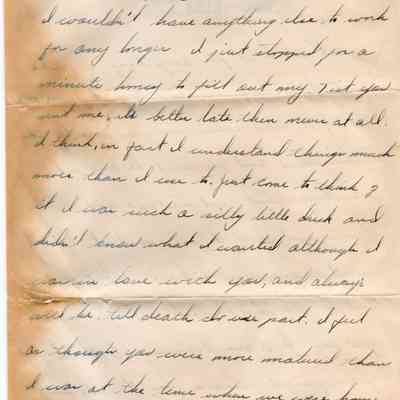 I wouldn't have anything else to work
for any longer. I just stopped for a
minute honey to fill out my Test you
sent me, its better late then never at all.
I think, in fact I understand things much
more than I use to. Just come to think of
it I was such a silly little duck and
didn't know what I wanted although I
was in love with you, and always
will be, till death do us part. I feel
as though you were more matured than
I was at the time when we were home